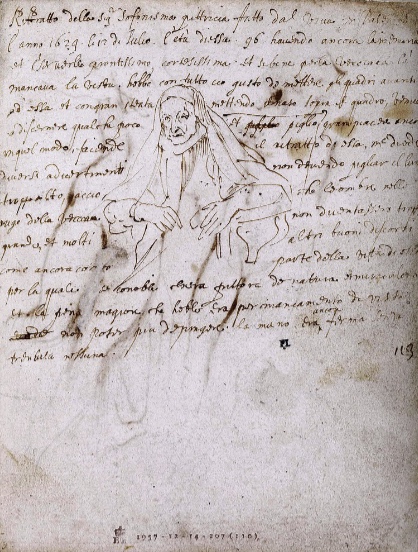 Ritratto della Sig.ra Sofonisma pittricia fatto dal vivo in
l'anno 1624 li 12 di Julio l'età di essa 96 havendo ancora la memoria
et il cervello prontissimo cortesissima et se bene per la vecciaia la
mancava la vista hebbe con tutto cio gusto di mettere gli quadri avanti
ad essa et con gran stenta mettendo naso sopra il quadro
a discernere qualche poco et piglio gran piacere ancora
in quel modo facendo il ritratto di essa me diede
diversi advertimenti non devendo pigliar il lume
troppo alto accio che l'ombre nelle
ruge della vecciaia non diventassero troppo
grande et molti altri buoni discorsi
come ancora conto parte della vita di essa
per la quale se conobbe chera pittora de natura et miraculosa
et la pena magiore che hebbe era per mancamento di vista
non poter piu dipingere la mano era ancora ferma senza
tremula nessuna
110
1957-12-14-207(110)